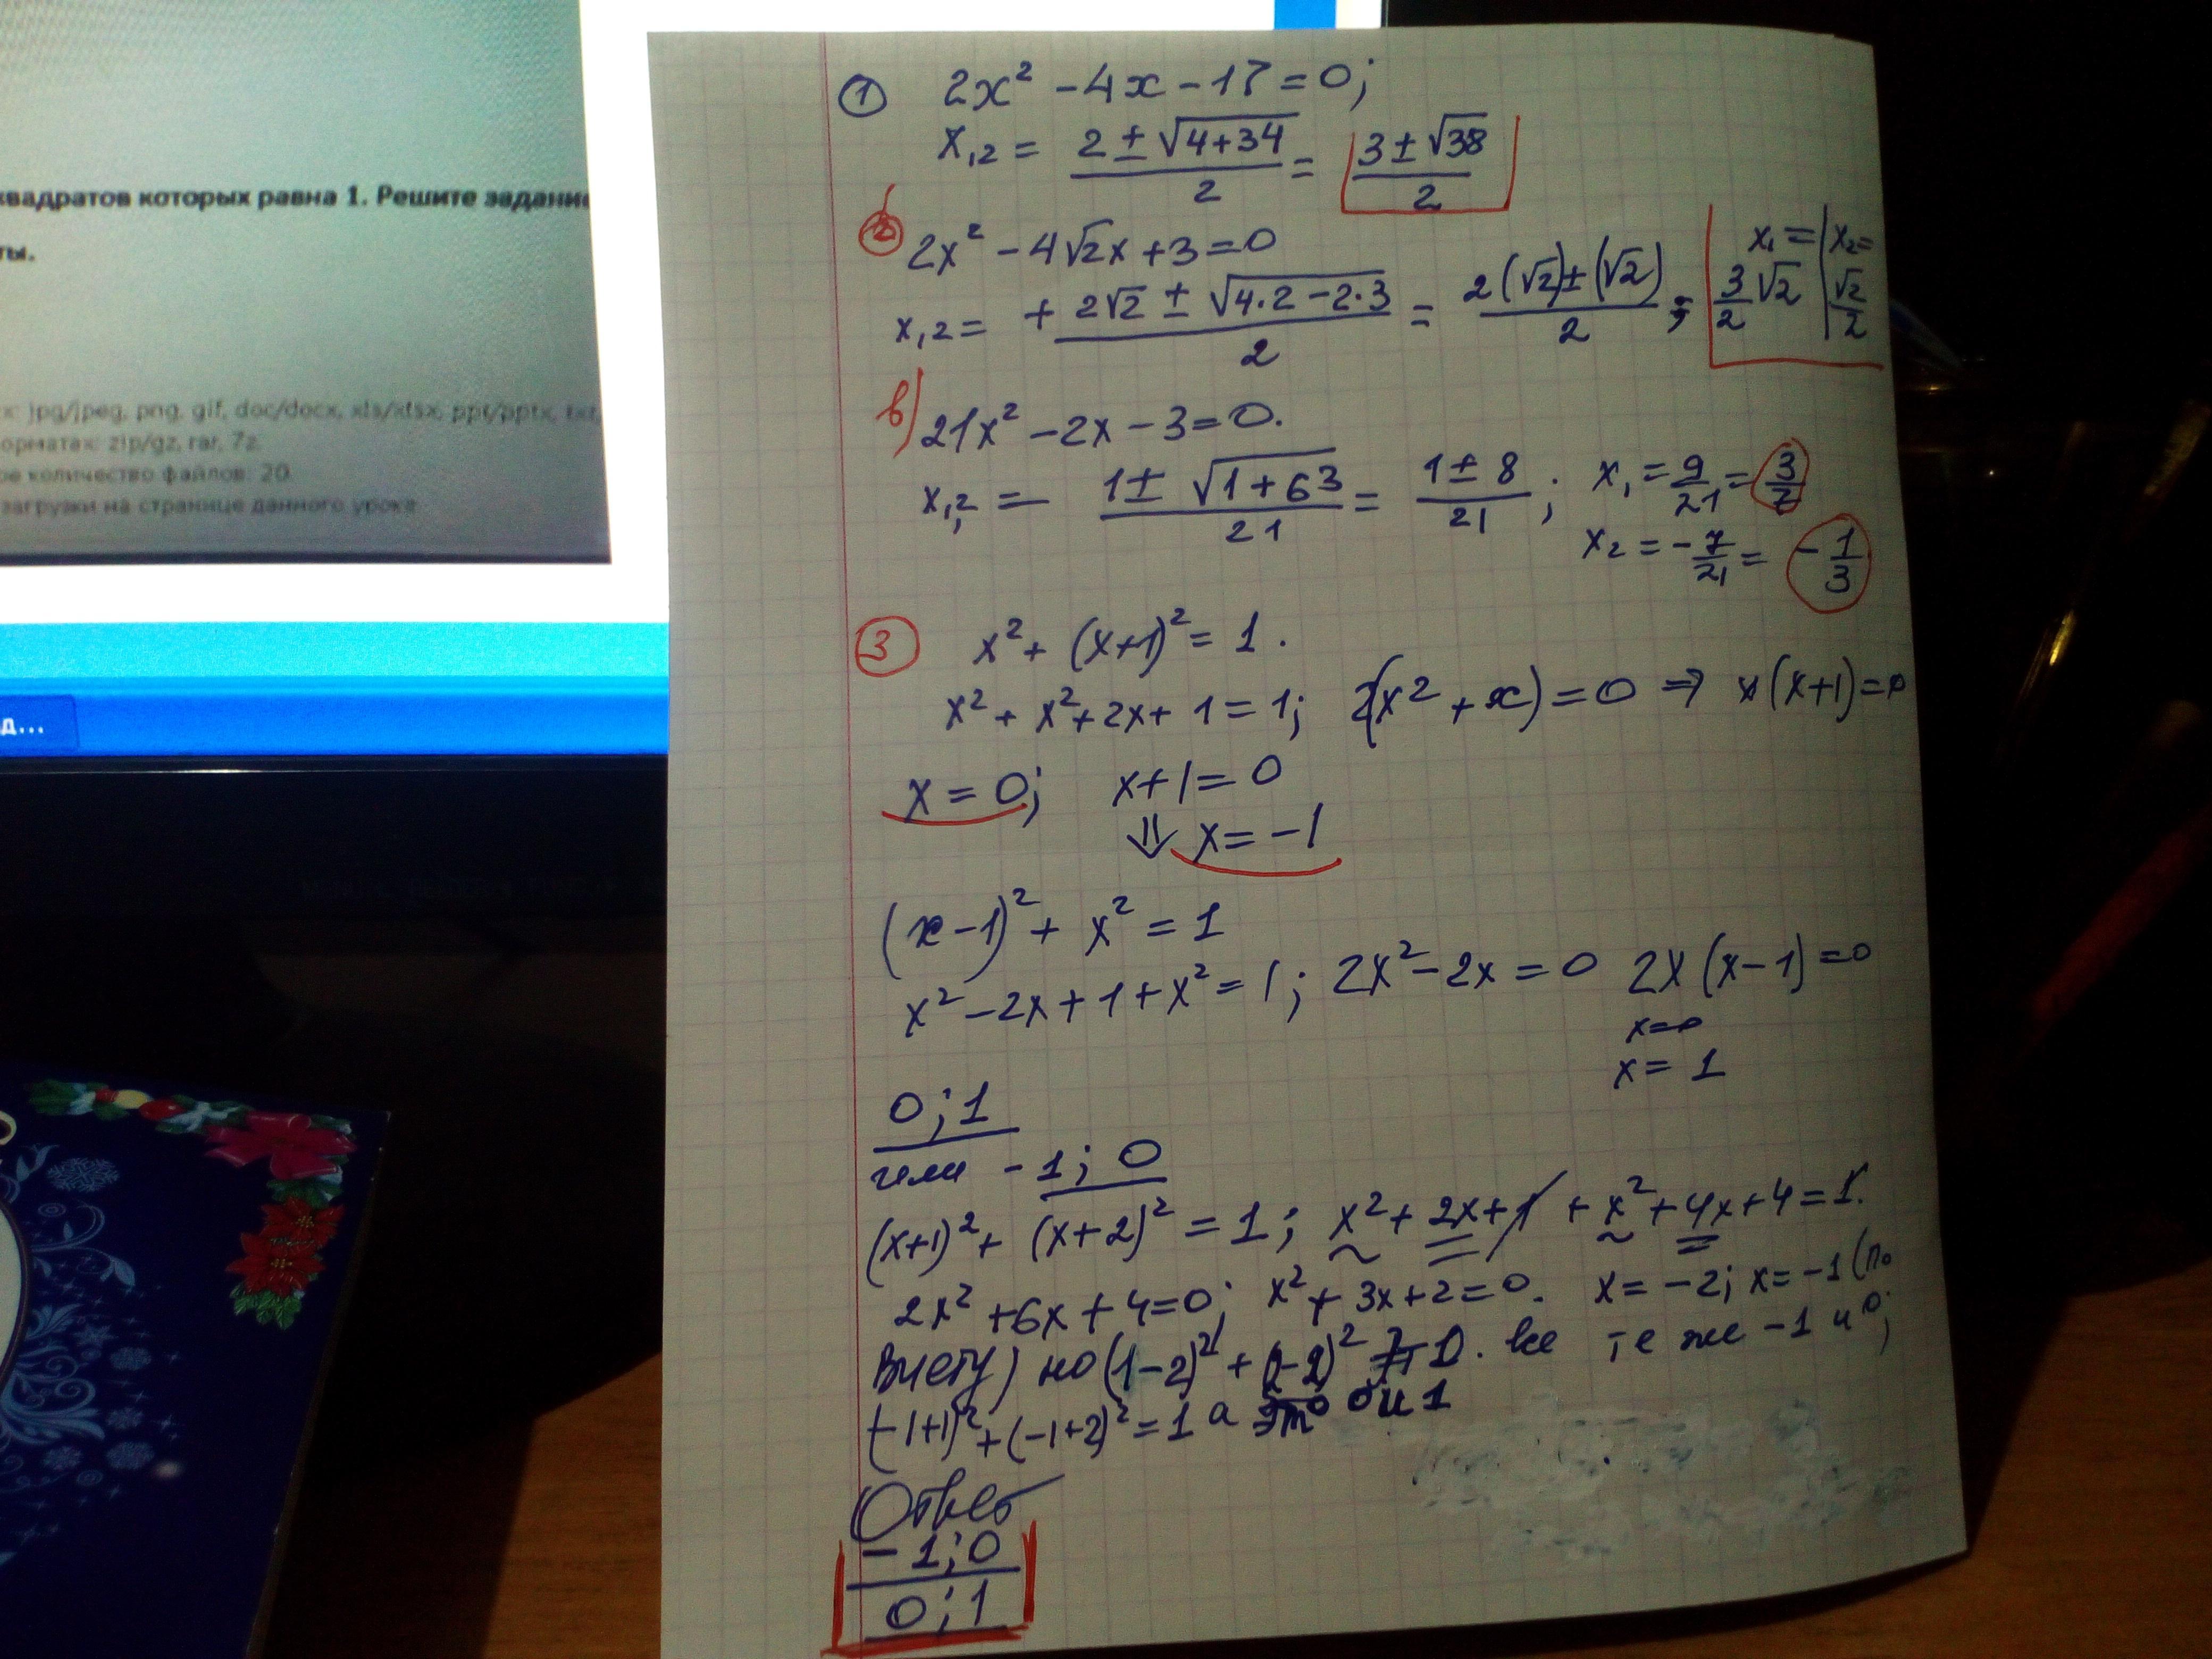 квадратов которых равна 1. Решите задание
ты.
х: jpg/jpeg, png, gif, doc/docx, xls/xlsx, ppt/pptx, txt,
орматах: zip/gz, rar, 7z.
ое количество файлов: 20.
загрузки на странице данного урока
д...
① 2x² - 4x - 17 = 0;
x₁,₂ = (2 ± √(4+34))/2 = (3 ± √38)/2
2x² - 4√2x + 3 = 0
x₁,₂ = + (2√2 ± √(4·2 - 2·3))/2 = (2(√2) ± (√2))/2; x₁ = 3/2 √2 | x₂ = √2/2
в) 21x² - 2x - 3 = 0.
x₁,₂ = (1 ± √(1+63))/21 = (1 ± 8)/21; x₁ = 9/21 = 3/7
x₂ = -7/21 = -1/3
③ x² + (x+1)² = 1.
x² + x² + 2x + 1 = 1; 2(x² + x) = 0 ⇒ x(x+1) = 0
x = 0; x + 1 = 0
⇓ x = -1
(x-1)² + x² = 1
x² - 2x + 1 + x² = 1; 2x² - 2x = 0 2x(x-1) = 0
x = 0
x = 1
0; 1
или -1; 0
(x+1)² + (x+2)² = 1; x² + 2x + 1 + x² + 4x + 4 = 1.
2x² + 6x + 4 = 0; x² + 3x + 2 = 0. x = -2; x = -1 (по
Виету) но (1-2)² + (2-2)² = 1. все те же -1 и 0;
(-1+1)² + (-1+2)² = 1 а это 0 и 1
Ответ
-1; 0
0; 1